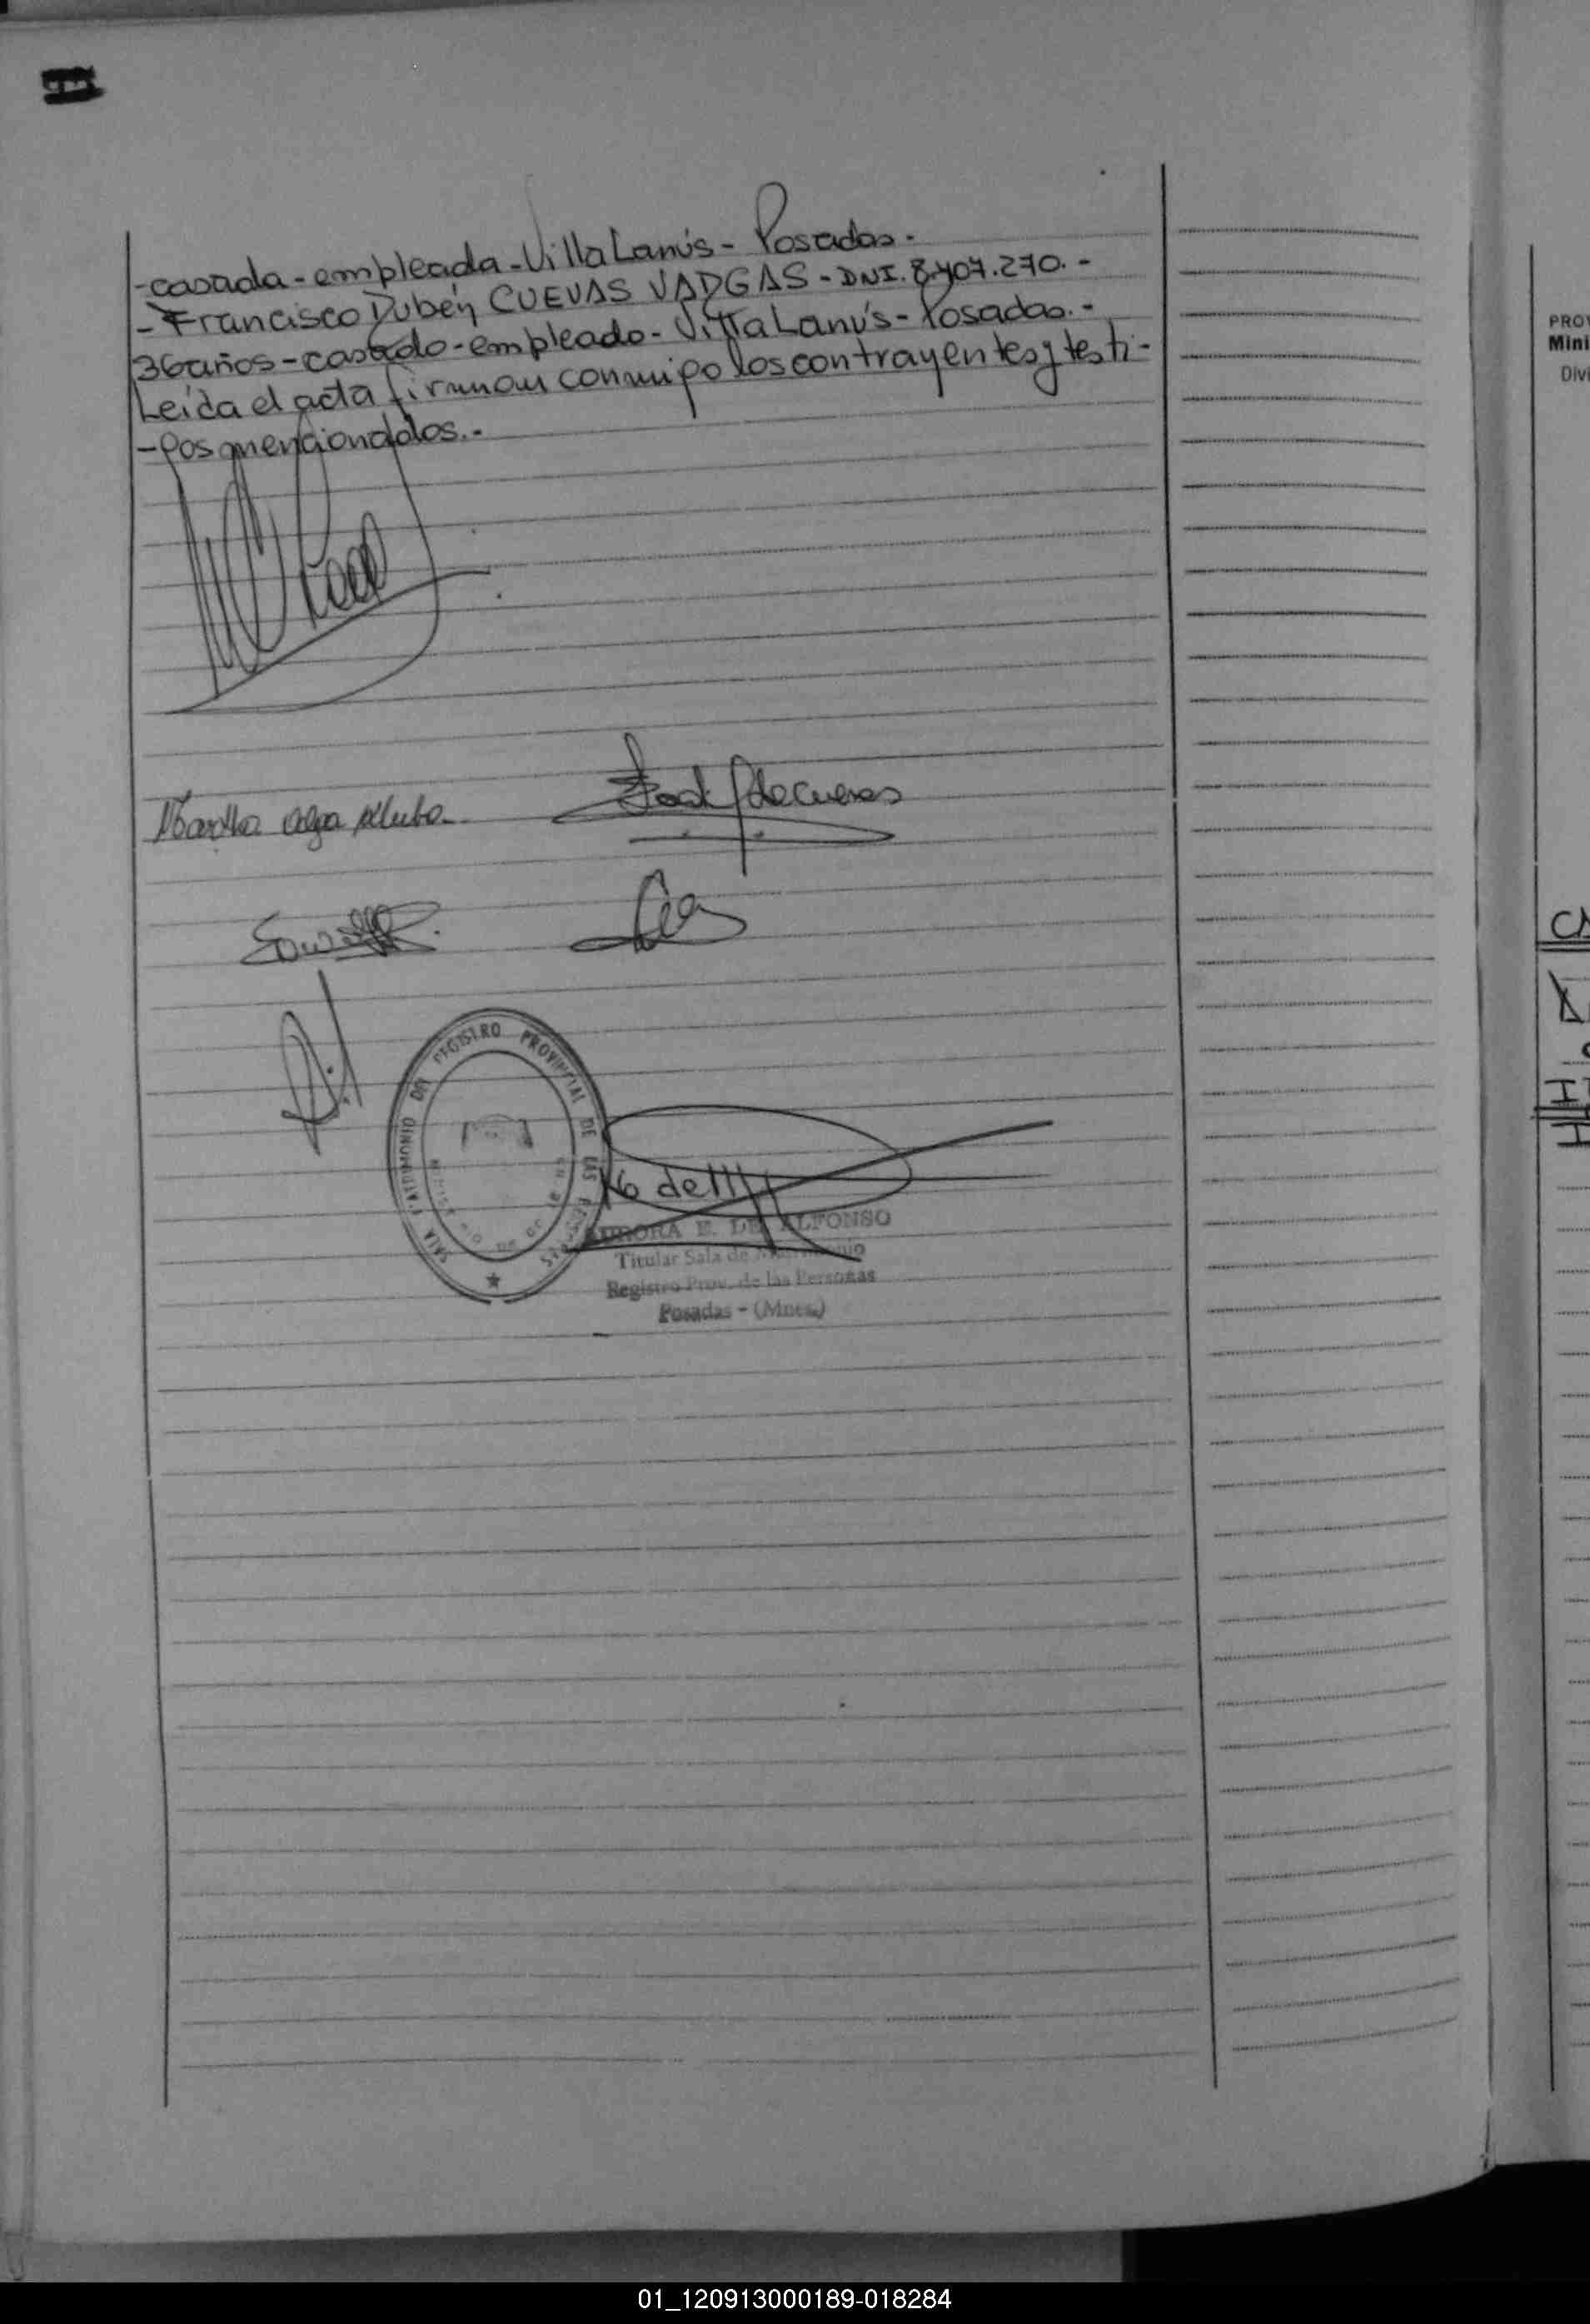 -casada-empleada-Villa Lanús- Posadas.-
-Francisco Rubén CUEVAS VARGAS-DNI.8.407.270.-
36años-casado-empleado-Villa Lanús-Posadas.-
Leída el acta firman conmigo los contrayentes y testi-
-gos mencionados.-
Martha Olga
de Cuevas
SALA MATRIMONIO DEL REGISTRO PROVINCIAL DE LAS PERSONAS
AURORA E. DE ALFONSO
Titular Sala de Matrimonio
Registro Prov. de las Personas
Posadas - (Mnes.)
PROV
Mini
Divi
01_120913000189-018284